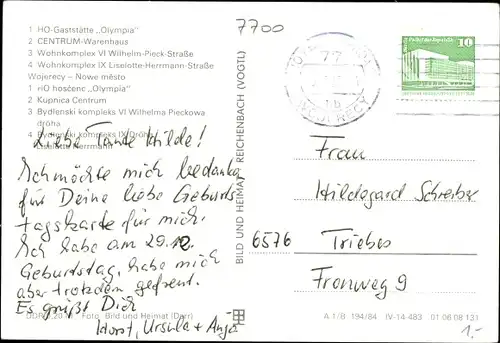 7700
1 HO-Gaststätte „Olympia"
2 CENTRUM-Warenhaus
3 Wohnkomplex VI Wilhelm-Pieck-Straße
4 Wohnkomplex IX Liselotte-Herrmann-Straße
Wojerecy – Nowe město
1 HO hosćenc „Olympia"
2 Kupnica Centrum
3 Bydlenski kompleks VI Wilhelma Pieckowa
dróha
4 Bydlenski kompleks IX Dróha
Liselotte Herrmann
Liebe Tante Hilde!
Ich möchte mich bedanken
für Deine liebe Geburts
tagskarte für mich.
Ich habe am 29.12.
Geburtstag, habe mich
aber trotzdem gefreut.
Es grüßt Dich
Horst, Ursula + Anja
Foto Bild und Heimat (Darr)
BILD UND HEIMAT REICHENBACH (VOGTL)
77
WOJERECY
10
Frau
Hildegard Schreiber
6576 Triebes
Fronweg 9
A 1/B 194/84 IV-14-483 01 06 08 131
1,-